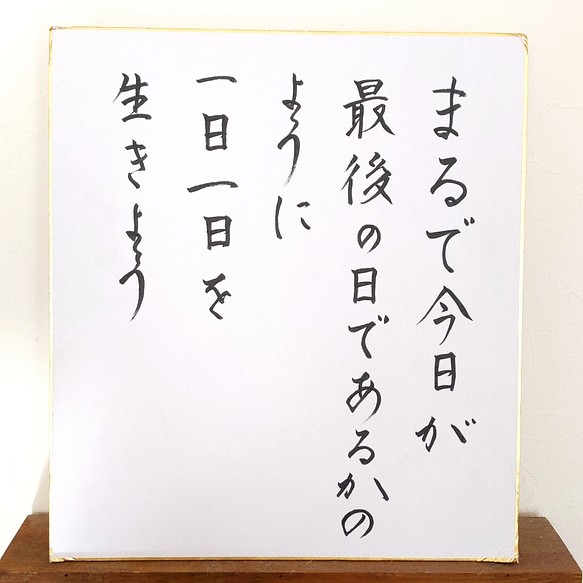 まるで今日が
最後の日であるかの
ように
一日一日を
生きよう